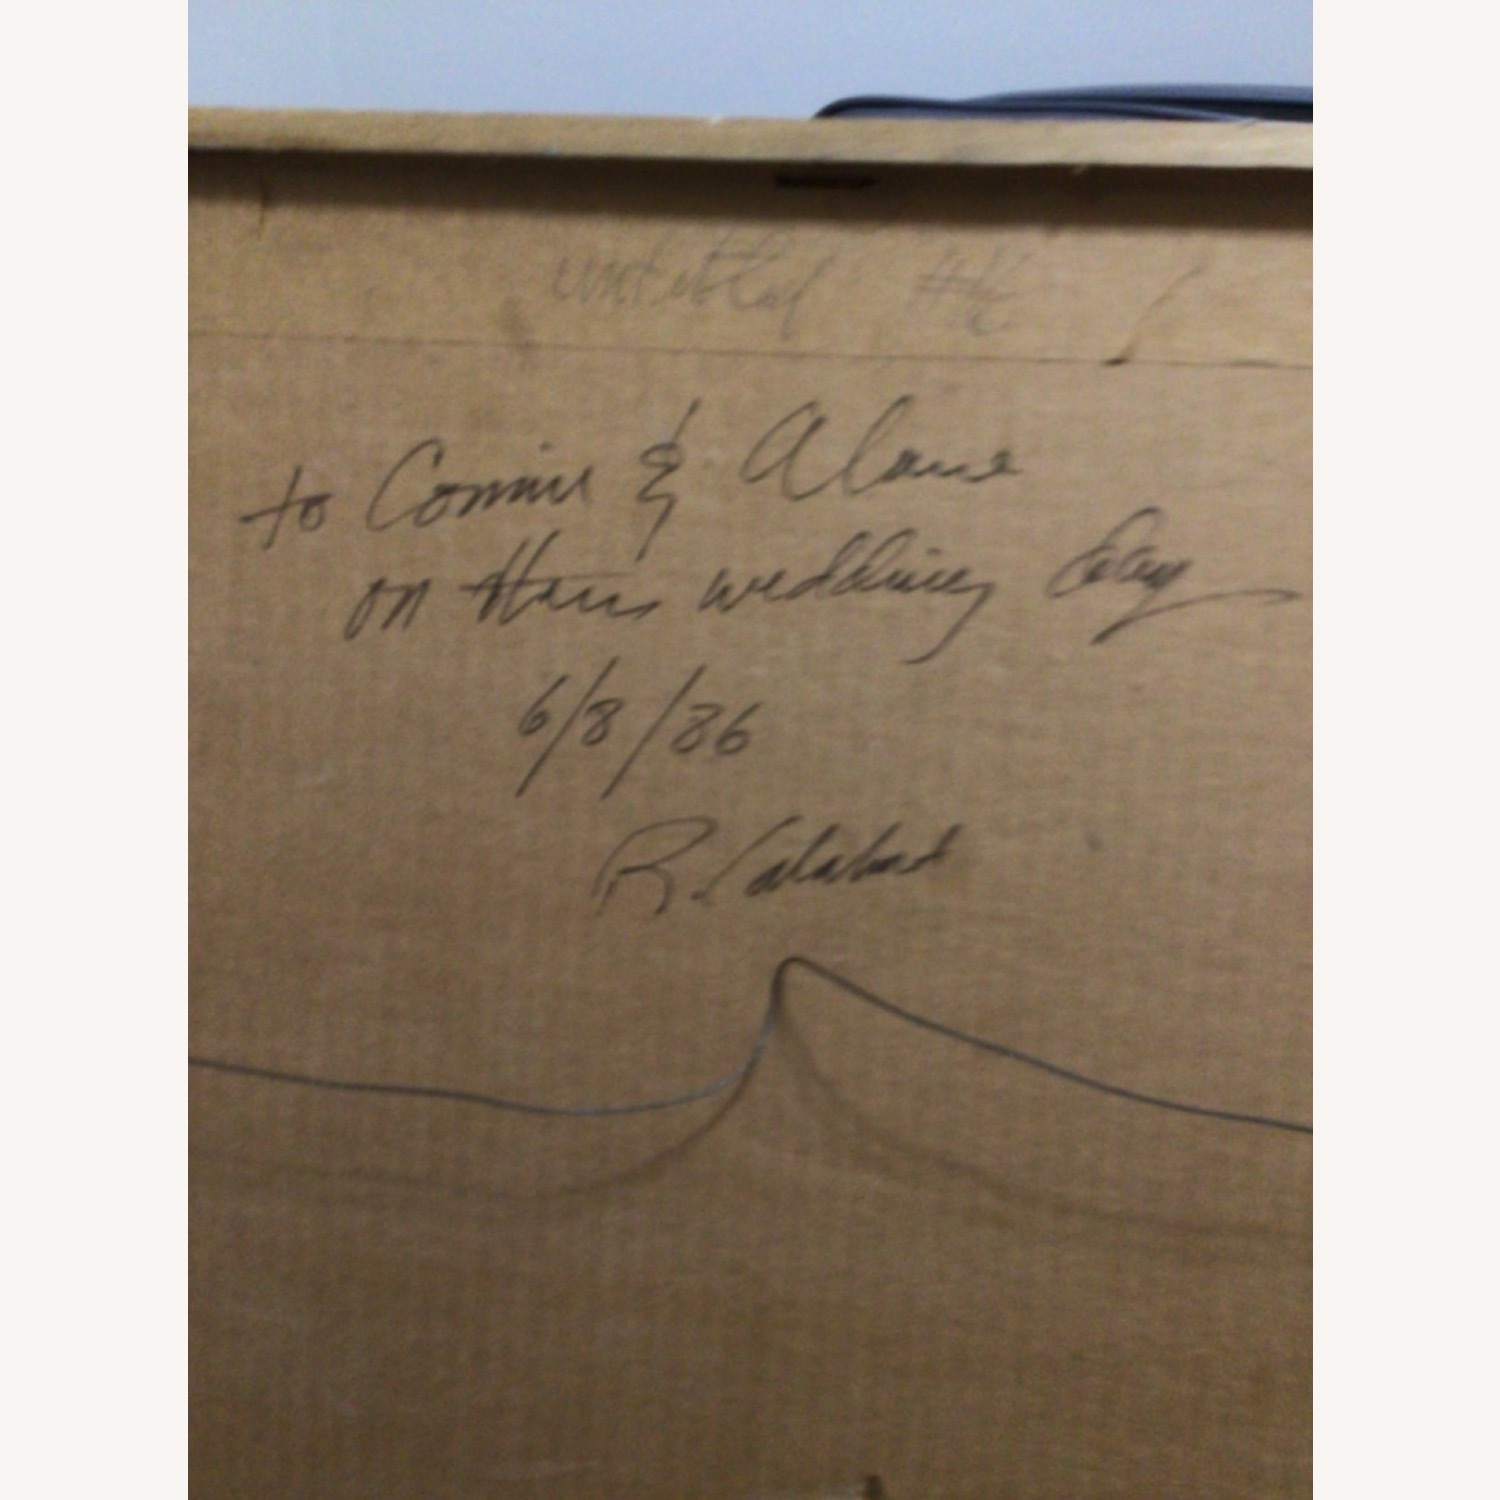 untitled
to Connie & Alane
on their wedding day
6/8/86
R.